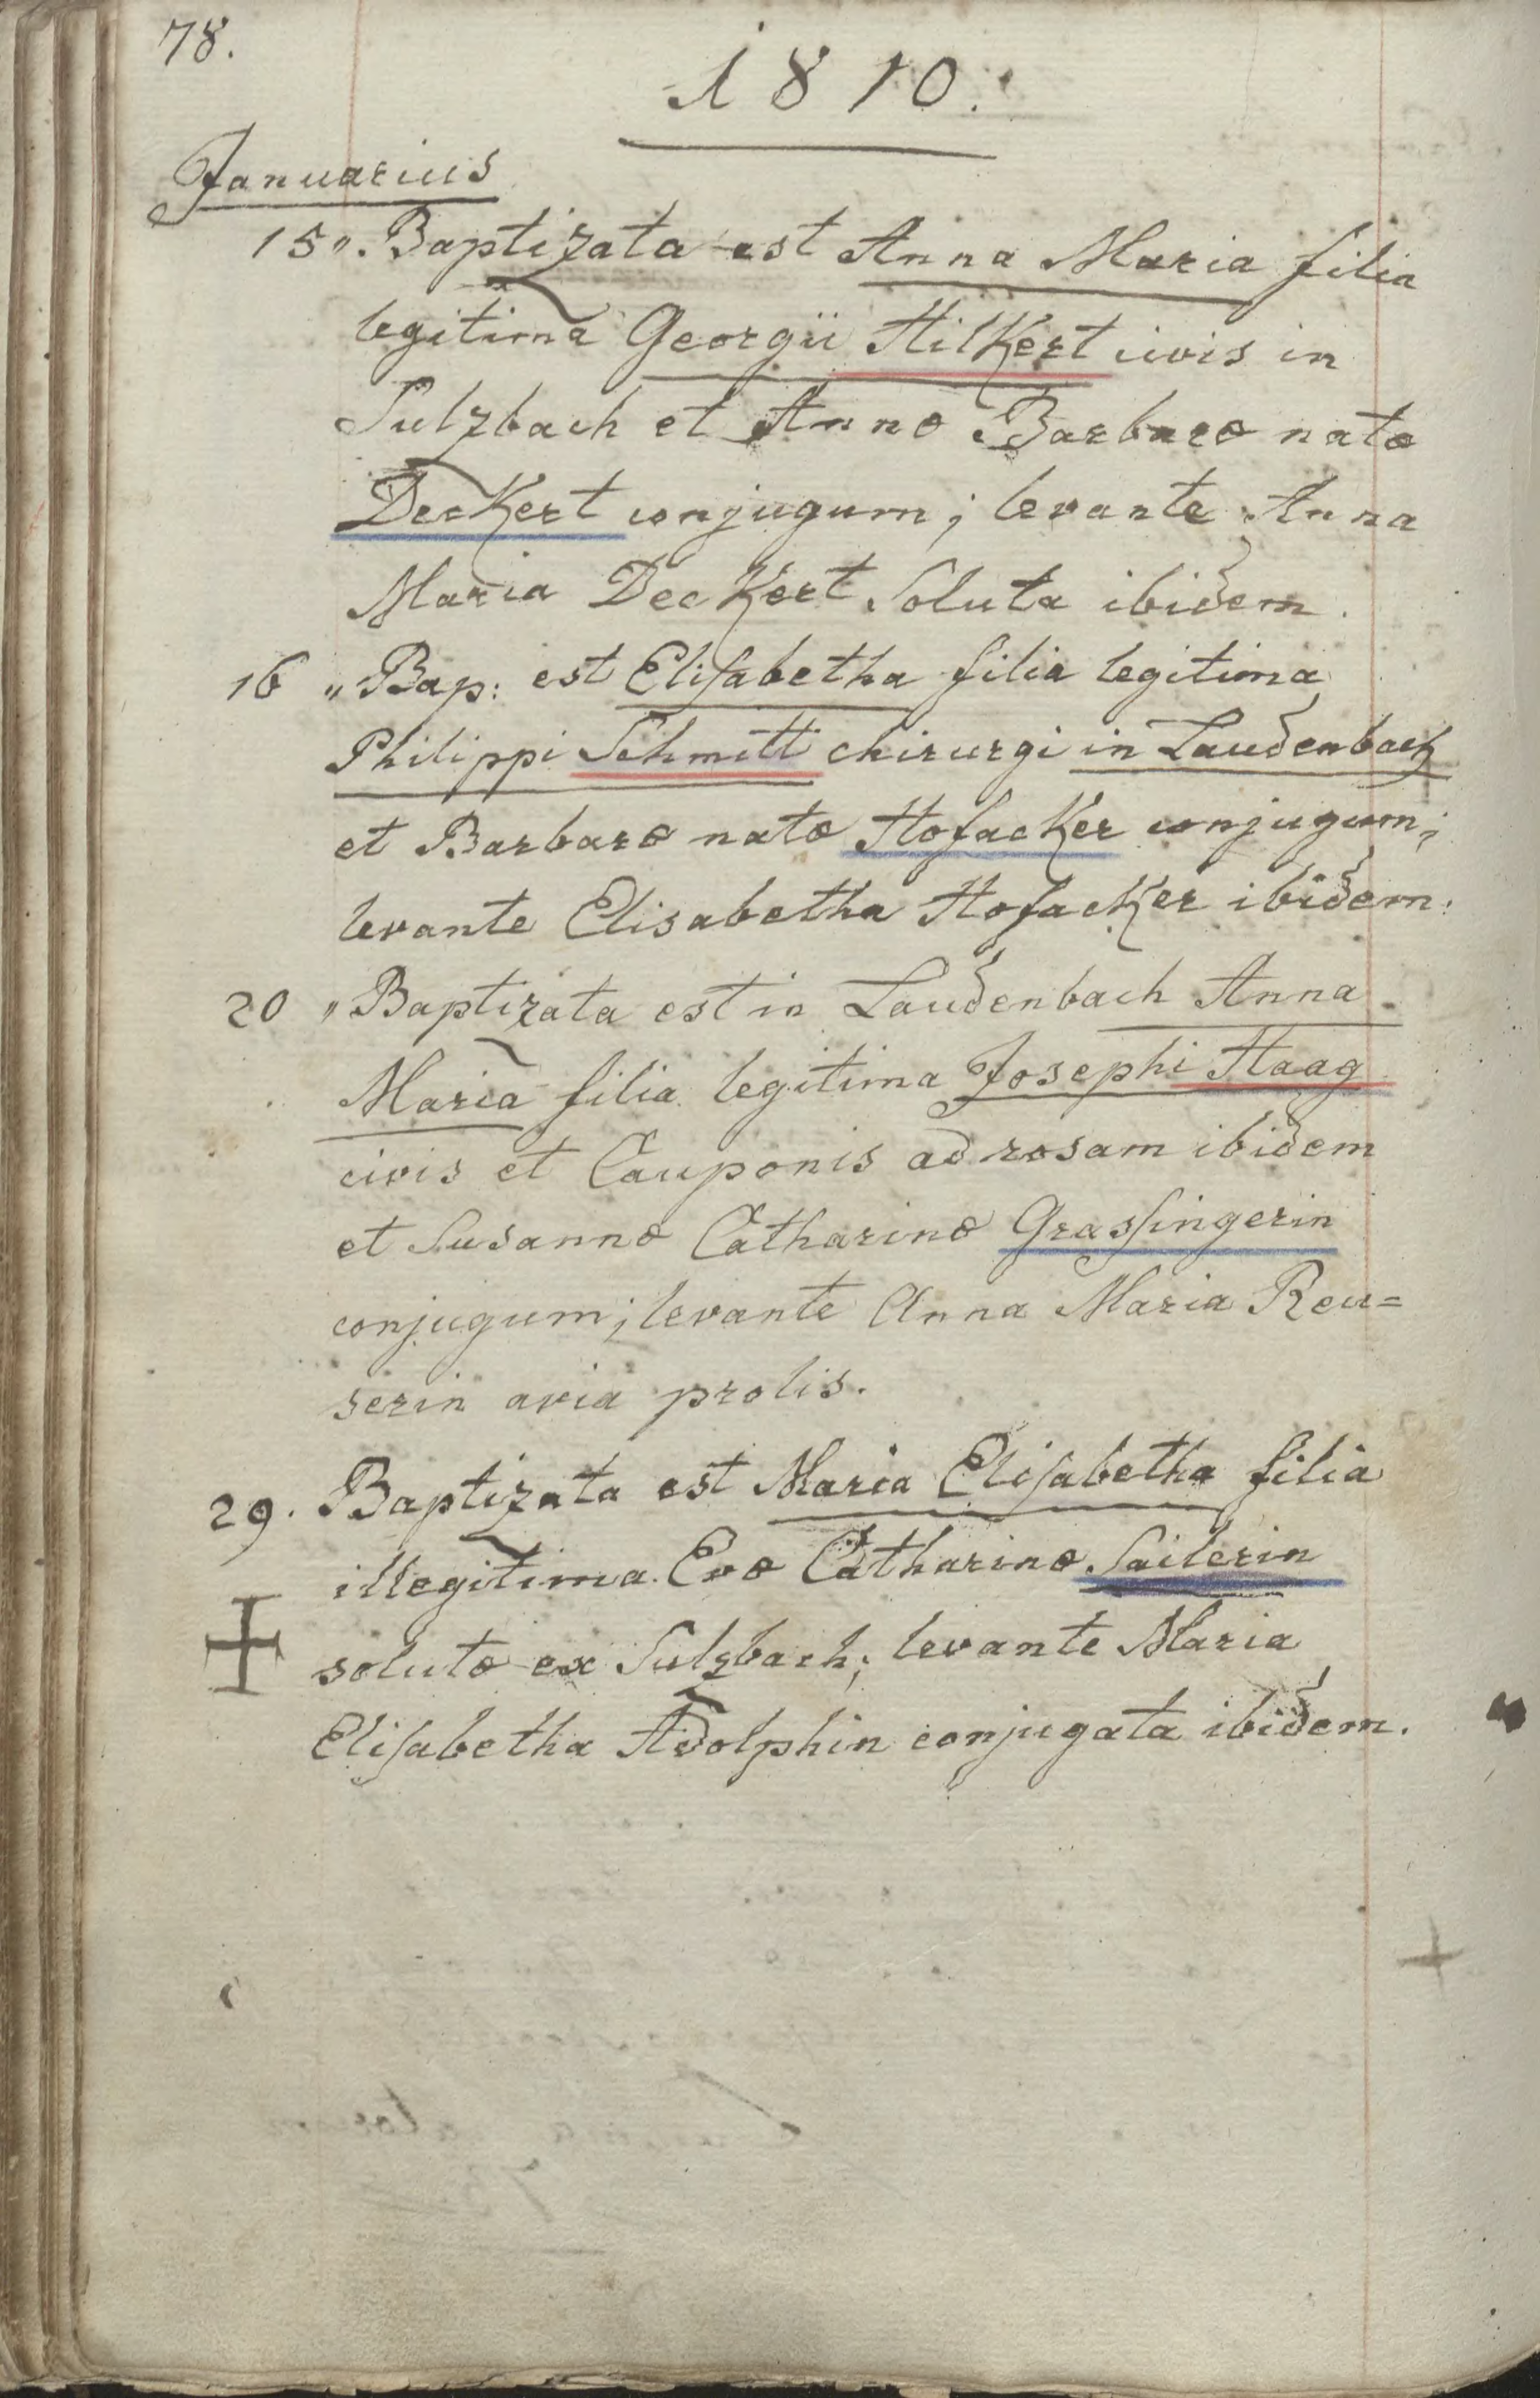 78.
1810.
Januarius
15„. Baptizata est Anna Maria filia
legitima Georgii Hilkert civis in
Sulzbach et Annæ Barbaræ natæ
Deckert conjugum; levante Anna
Maria Deckert Soluta ibidem.
16 „ Bap: est Eliſabetha filia legitima
Philippi Schmitt chirurgi in Laudenbach
et Barbaræ natæ Hofacker conjugum;
levante Elisabetha Hofacker ibidem.
20 „ Baptizata est in Laudenbach Anna
Maria filia legitima Josephi Haag
civis et Cauponis ad rosam ibidem
et Susannæ Catharinæ Grasſingerin
conjugum; levante Anna Maria Reu=
serin avia prolis.
29. Baptizata est Maria Eliſabetha filia
illegitima Evæ Catharinæ Sailerin
solutæ ex Sulzbach; levante Maria
Eliſabetha Adolphin conjugata ibidem.